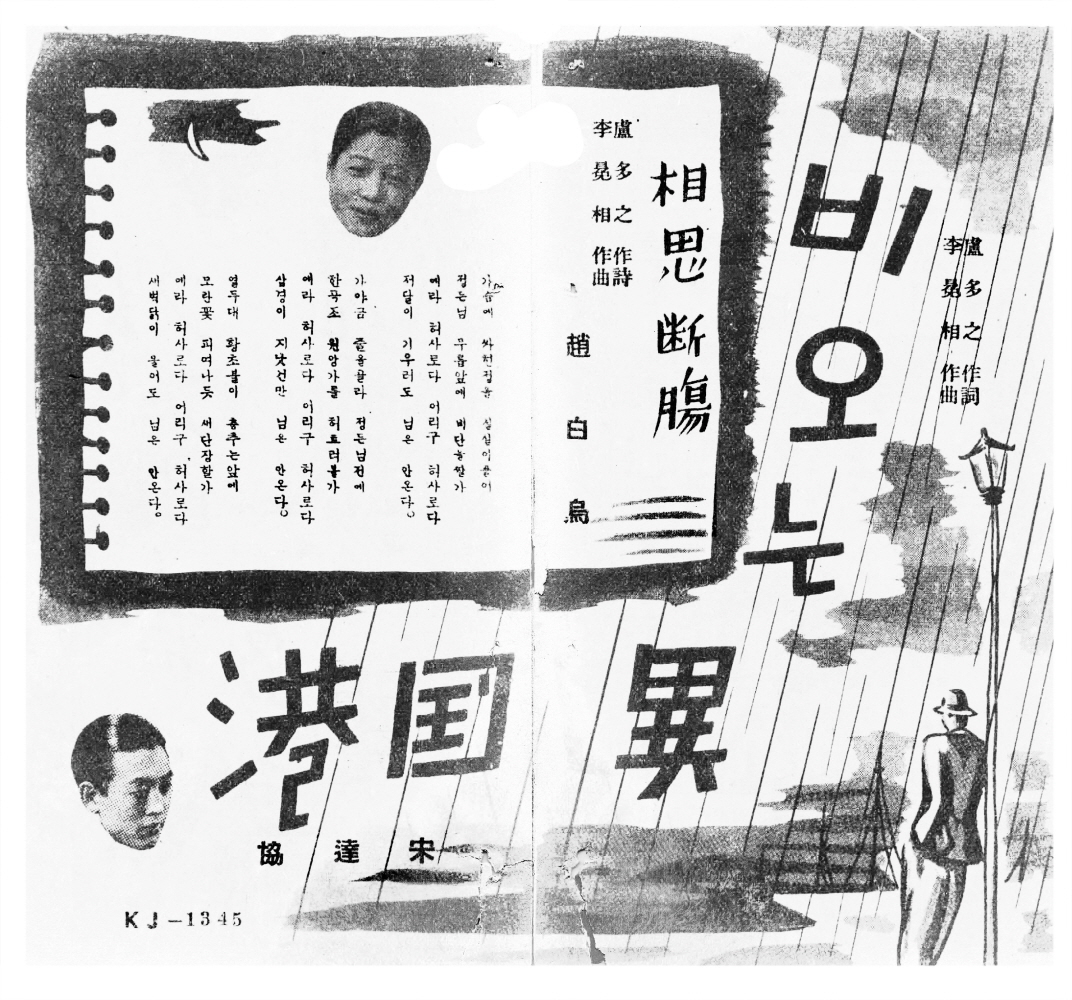 비오는
異国港
盧多之 作詞
李冕相 作曲
宋達協
相思断膓
盧多之 作詩
李冕相 作曲
趙白烏
가슴에
정든님 무릅앞에
에라 허사로다 어리구 허사로다
저달이 기우러도 님은 안온다。
가야금 줄을골라 정든님전에
한곡조 원앙가를 허트러볼가
에라 허사로다 어리구 허사로다
삼경이 지낫건만 님은 안온다。
열두대 황초불이 춤추는앞에
모란꽃 피여나듯 새단장할가
에라 허사로다 어리구 허사로다
새벽닭이 울어도 님은 안온다。
KJ-1345